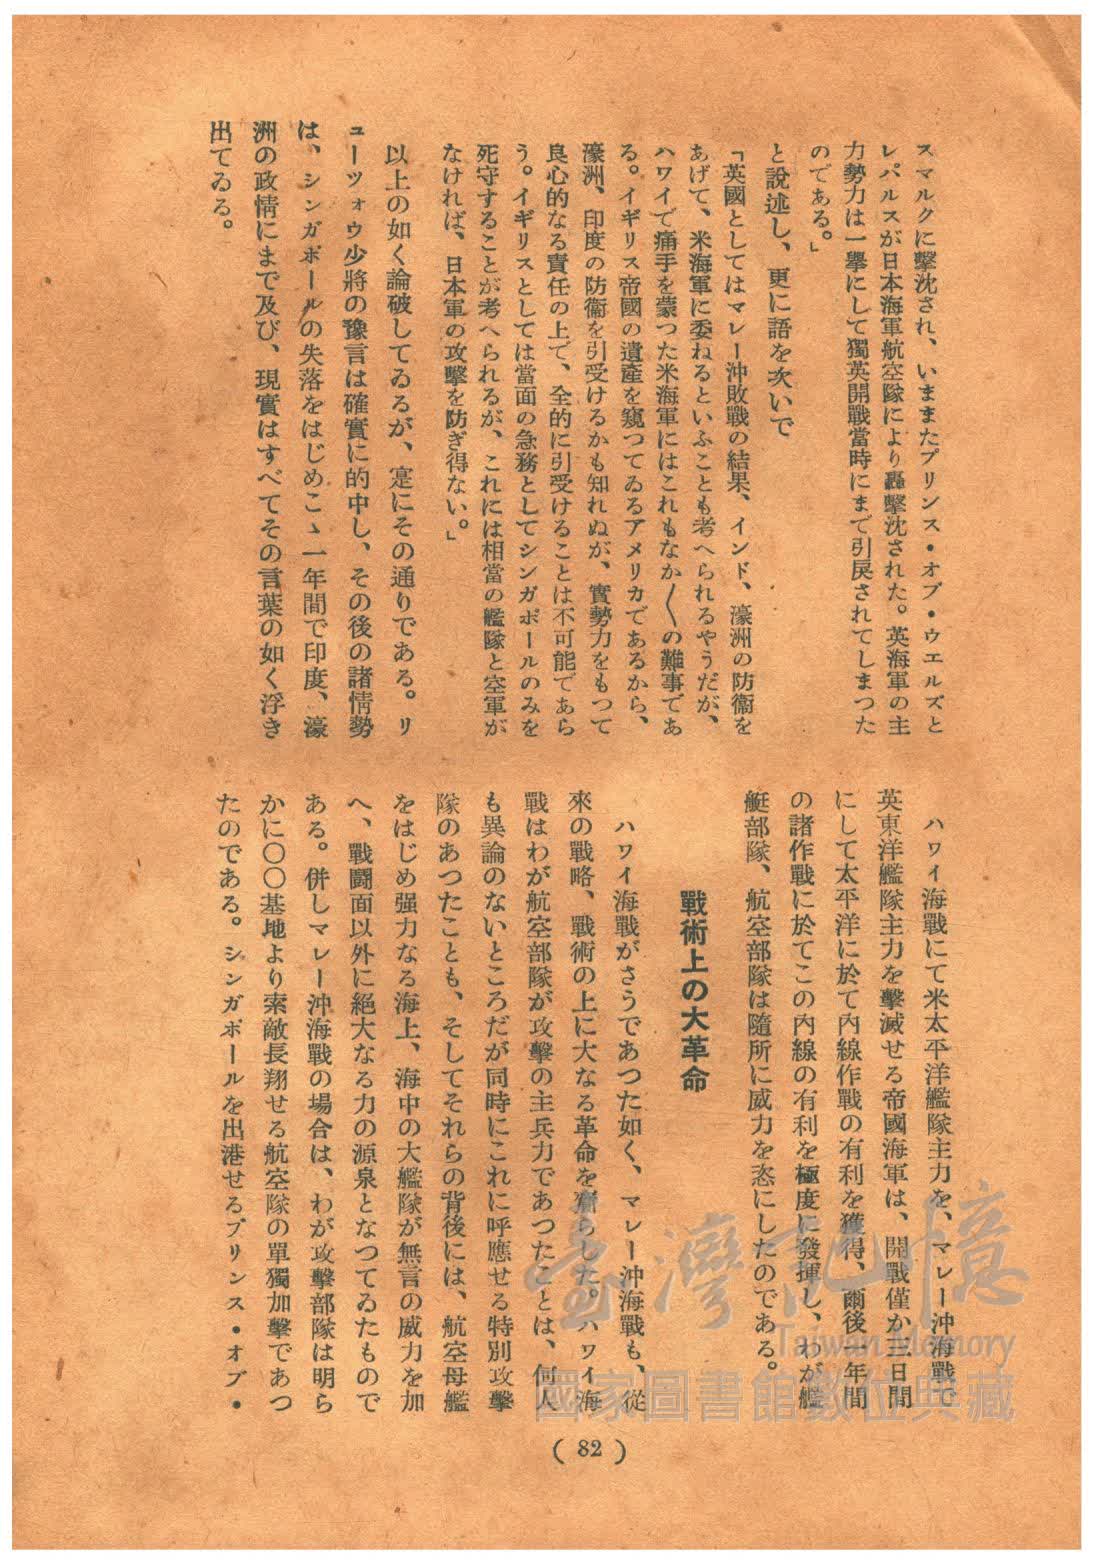 スマルクに擊沈され、いままたプリンス・オブ・ウエルズと
レパルスが日本海軍航空隊により轟擊沈された。英海軍の主
力勢力は一擧にして獨英開戰當時にまで引戾されてしまつた
のである。」
と說述し、更に語を次いで
「英國としてはマレー沖敗戰の結果、インド、濠洲の防衞を
あげて、米海軍に委ねるといふことも考へられるやうだが、
ハワイで痛手を蒙つた米海軍にはこれもなか〱の難事であ
る。イギリス帝國の遺產を窺つてゐるアメリカであるから、
濠洲、印度の防衞を引受けるかも知れぬが、實勢力をもつて
良心的なる責任の上で、全的に引受けることは不可能であら
う。イギリスとしては當面の急務としてシンガポールのみを
死守することが考へられるが、これには相當の艦隊と空軍が
なければ、日本軍の攻擊を防ぎ得ない。」
以上の如く論破してゐるが、寔にその通りである。リ
ューツォウ少將の豫言は確實に的中し、その後の諸情勢
は、シンガポールの失落をはじめこゝ一年間で印度、濠
洲の政情にまで及び、現實はすべてその言葉の如く浮き
出てゐる。
ハワイ海戰にて米太平洋艦隊主力を、マレー沖海戰で
英東洋艦隊主力を擊滅せる帝國海軍は、開戰僅か三日間
にして太平洋に於て內線作戰の有利を獲得、爾後一年間
の諸作戰に於てこの內線の有利を極度に發揮し、わが艦
艇部隊、航空部隊は隨所に威力を恣にしたのである。
戰術上の大革命
ハワイ海戰がさうであつた如く、マレー沖海戰も、從
來の戰略、戰術の上に大なる革命を齎らした。ハワイ海
戰はわが航空部隊が攻擊の主兵力であつたことは、何人
も異論のないところだが同時にこれに呼應せる特別攻擊
隊のあつたことも、そしてそれらの背後には、航空母艦
をはじめ强力なる海上、海中の大艦隊が無言の威力を加
へ、戰鬪面以外に絕大なる力の源泉となつてゐたもので
ある。併しマレー沖海戰の場合は、わが攻擊部隊は明ら
かに〇〇基地より索敵長翔せる航空隊の單獨加擊であつ
たのである。シンガポールを出港せるプリンス・オブ・
( 82 )
臺灣記憶
Taiwan Memory
國家圖書館數位典藏